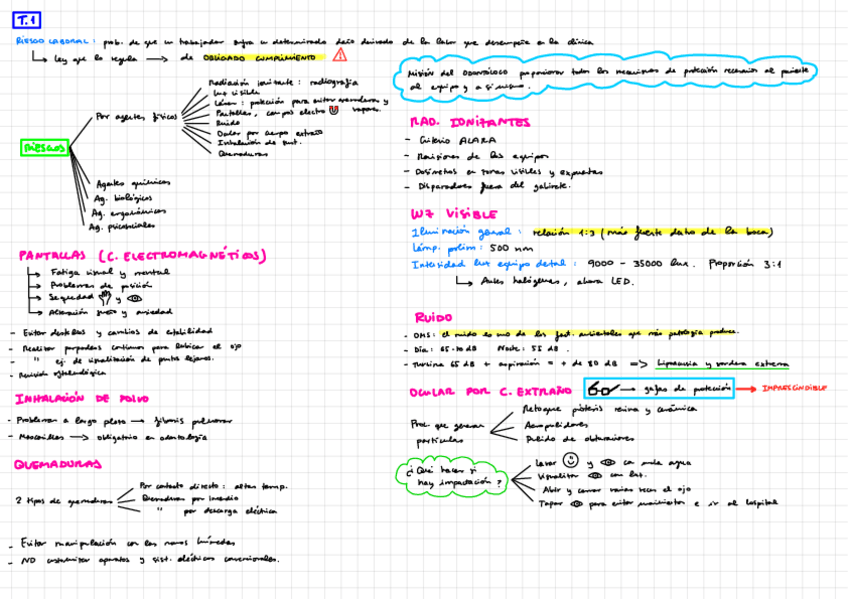 T.1
RIESGO LABORAL: prob. de que un trabajador sufra un determinado daño derivado de la labor que desempeña en la clínica
Ley que lo regula → de OBLIGADO CUMPLIMIENTO
RIESGOS
Por agentes físicos
Radiación ionizante: radiografía
Luz visible
Láser: protección para evitar quemaduras y vapores.
Pantallas, campos electro
Ruido
Ocular por cuerpo extraño
Inhalación de
Quemaduras
Agentes químicos
Ag. biológicos
Ag. ergonómicos
Ag. psicosociales
PANTALLAS (C. ELECTROMAGNÉTICOS)
Fatiga visual y mental
Problemas de posición
Sequedad y
Alteración sueño y ansiedad
- Evitar destellos y cambios de estabilidad
- Realizar parpadeos continuos para lubricar el ojo
- " ej. de visualización de puntos lejanos.
- Revisión oftalmológica
INHALACIÓN DE POLVO
- Problemas a largo plazo → fibrosis pulmonar
- Mascarillas → obligatorio en odontología
QUEMADURAS
2 tipos de quemaduras
Por contacto directo: altas temp.
Quemaduras por incendio
" por descarga eléctrica
- Evitar manipulación con las manos húmedas
- NO customizar aparatos y sist. eléctricos convencionales.
Misión del ODONTÓLOGO proporcionar todos los mecanismos de protección necesarios al paciente
al equipo y a sí mismo.
RAD. IONIZANTES
- Criterio ALARA
- Revisiones de los equipos
- Dosímetros en zonas visibles y expuestas
- Disparadores fuera del gabinete.
LUZ VISIBLE
Iluminación general: relación 1:3 (más fuerte dentro de la boca)
Lámp. polim: 500 nm
Intensidad luz equipo dental: 9000 - 35000 lux. Proporción 3:1
Antes halógenas, ahora LED.
RUIDO
- OMS: el ruido es uno de los fact. ambientales que más patología produce.
- Día: 65-70 dB Noche: 55 dB.
- Turbina 65 dB + aspiración = + de 80 dB => Hipoacusia y sordera extrema
OCULAR POR C. EXTRAÑO
→ gafas de protección → IMPRESCINDIBLE
Proc. que generan
partículas
Retoque prótesis resina y cerámica
Aeropulidores
Pulido de obturaciones
¿Qué hacer si
hay impactación?
Lavar y con mucha agua
Visualizar con luz.
Abrir y cerrar varias veces el ojo
Tapar para evitar movimientos e ir al hospital